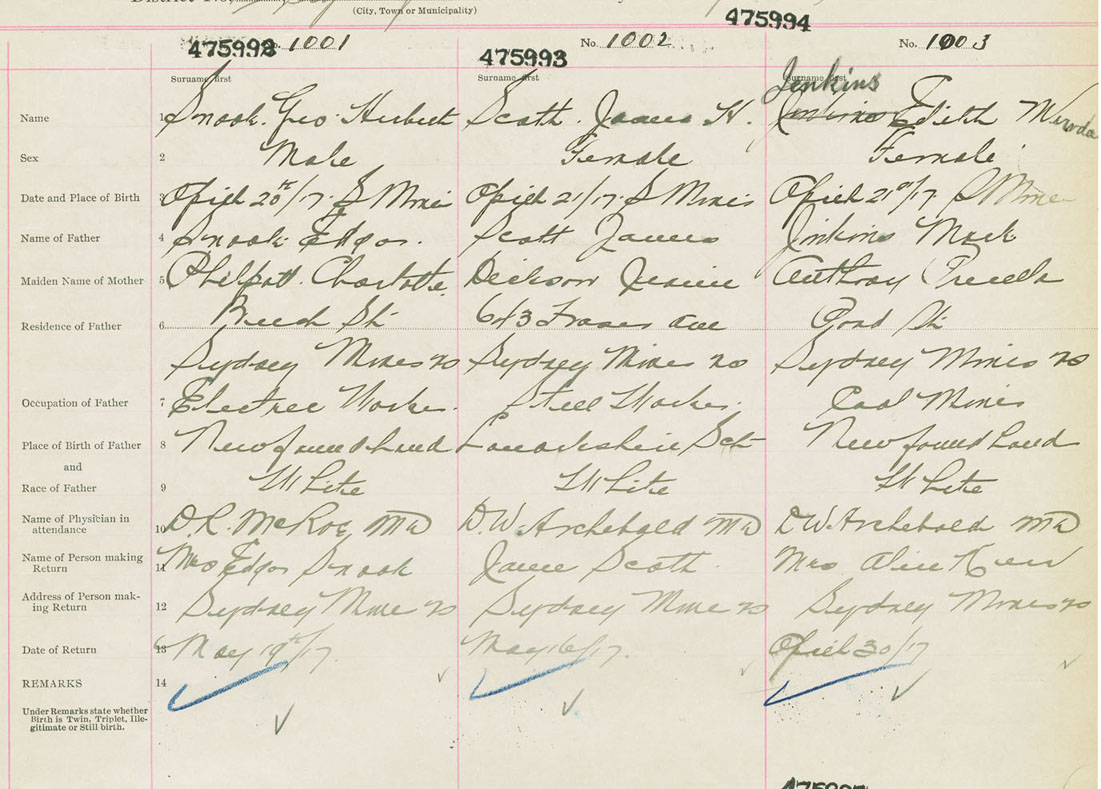 (City, Town or Municipality)
475992 1001
475993 No. 1002
475994 No. 1003
Surname first Surname first Surname first
Jenkins
Name 1 Snook. Geo Herbert Scott. James H. Edith
Sex 2 Male Female Female
Date and Place of Birth 3 April 20th/17. S Mines April 21/17. S Mines April 21st/17 S Mine
Name of Father 4 Snook. Edgar. Scott James Jinkins Mark
Maiden Name of Mother 5 Philpott. Charlotte. Dickson Jeanie Anthony
Residence of Father 6 Beech St 643 Fraser Ave Pond St
Sydney Mines Sydney Mines Sydney Mines
Occupation of Father 7 Electric Worker. Steel Worker. Coal Miner
Place of Birth of Father 8 Newfoundland Lanarkshire Sct Newfoundland
and
Race of Father 9 White White White
Name of Physician in
attendance 10 D.R. McRae MD D.W. Archebald MD D W. Archebald MD
Name of Person making
Return 11 Mrs Edgar Snook Scott. Mrs Alice
Address of Person mak-
ing Return 12 Sydney Mine Sydney Mine Sydney Mines
Date of Return 13 May 19th/17. May 16/17. April 30/17
REMARKS 14
Under Remarks state whether
Birth is Twin, Triplet, Ille-
gitimate or Still birth.